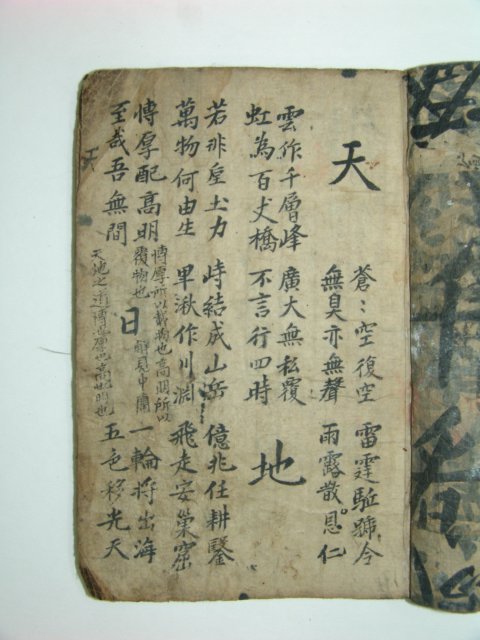 天
蒼〻空復空 雷霆駈號令
無臭亦無聲 雨露散恩仁
雲作千層峰 廣大無私覆
虹為百丈橋 不言行四時
地
若非垕土力 峙結成山岳 億兆任耕鑿
萬物何由生 卑湫作川淵 飛走安巢窟
博厚配高明
至哉吾無間
博厚所以載物也高明所以
覆物也 解見中庸
天地之道博也厚也高也明也
日
一輪將出海
五色移光天
天